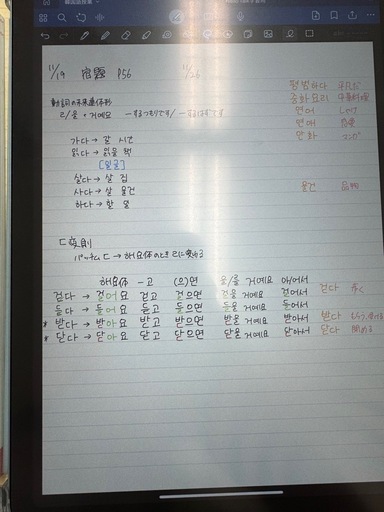 11/19 宿題 P56 11/26
평범하다 平凡だ
중화요리 中華料理
연어
연애 恋愛
만화 マンガ
動詞の未来連体形
ㄹ/을 + 거예요 ーするつもりです/
가다 → 갈 시간
읽다 → 읽을 책
[일글]
살다 → 살 집
사다 → 살 물건
물건 品物
하다 → 할 일
ㄷ変則
パッチム ㄷ → 해요体のとき ㄹに変わる
해요体 -고 (으)면 을/를 거예요 아/어서
걷다 → 걸어요 걷고 걸으면 걸을 거예요 걸어서 걷다 歩く
듣다 → 들어요 듣고 들으면 들을 거예요 들어서
* 받다 → 받아요 받고 받으면 받을 거예요 받아서 받다
* 닫다 → 닫아요 닫고 닫으면 닫을 거예요 닫아서 닫다 閉める